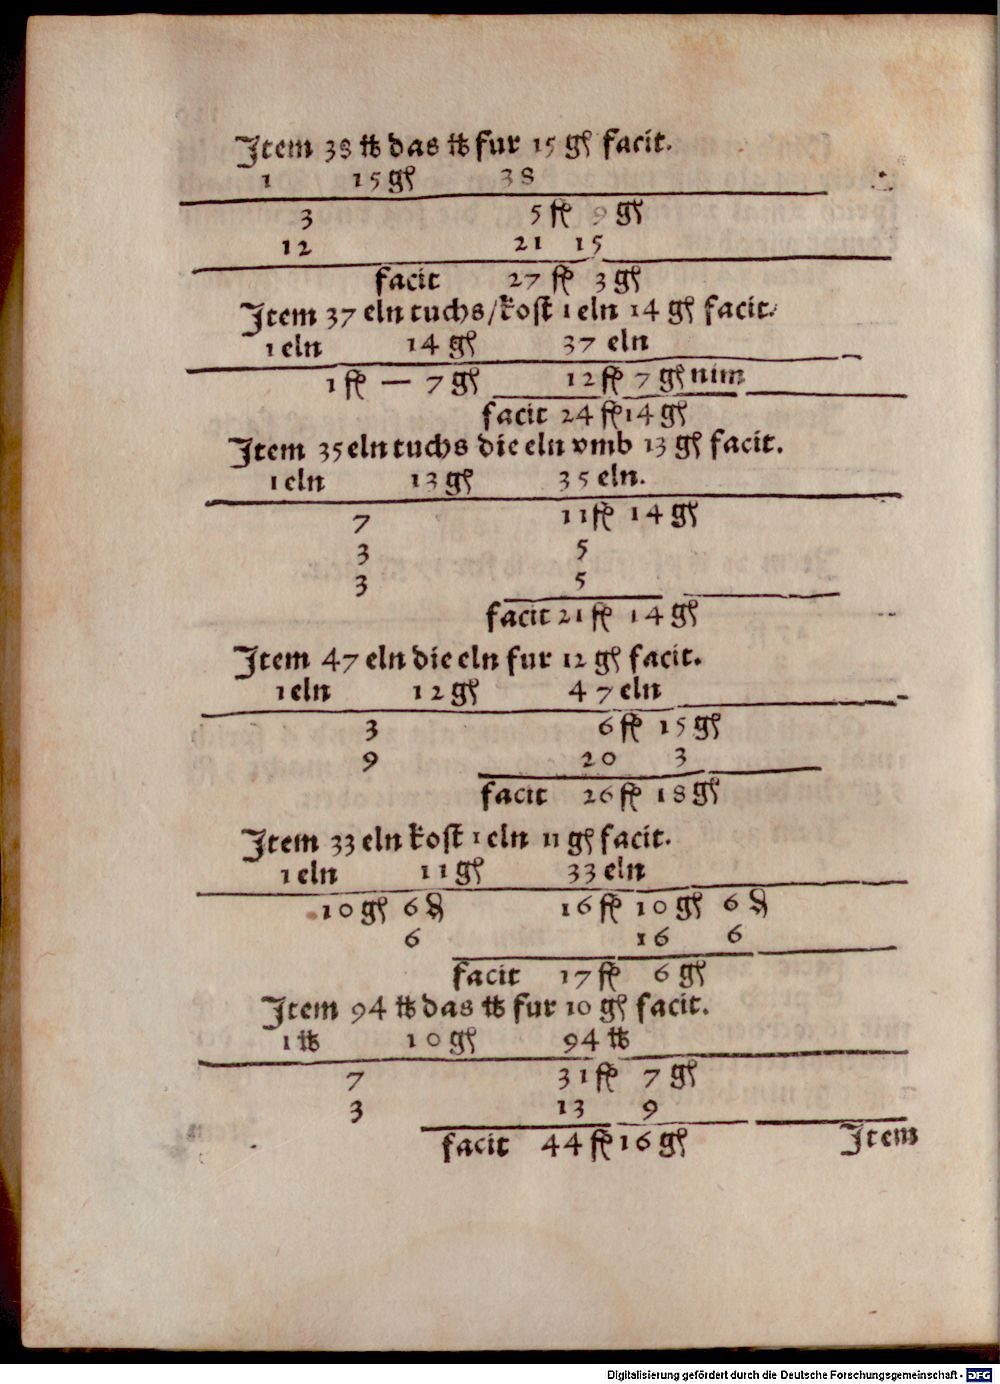 Item 38 ℔ das ℔ fur 15 gſ facit.
1 15 gſ 38
3 5 fl 9 gſ
12 21 15
facit 27 fl 3 gſ
Item 37 eln tuchs/koſt 1 eln 14 gſ facit.
1 eln 14 gſ 37 eln
1 fl — 7 gſ 12 fl 7 gſ nim
facit 24 fl 14 gſ
Item 35 eln tuchs die eln vmb 13 gſ facit.
1 eln 13 gſ 35 eln.
7 11 fl 14 gſ
3 5
3 5
facit 21 fl 14 gſ
Item 47 eln die eln fur 12 gſ facit.
1 eln 12 gſ 47 eln
3 6 fl 15 gſ
9 20 3
facit 26 fl 18 gſ
Item 33 eln koſt 1 eln 11 gſ facit.
1 eln 11 gſ 33 eln
10 gſ 6 ₰ 16 fl 10 gſ 6 ₰
6 16 6
facit 17 fl 6 gſ
Item 94 ℔ das ℔ fur 10 gſ facit.
1 ℔ 10 gſ 94 ℔
7 31 fl 7 gſ
3 13 9
facit 44 fl 16 gſ Item
Digitalisierung gefördert durch die Deutsche Forschungsgemeinschaft - DFG